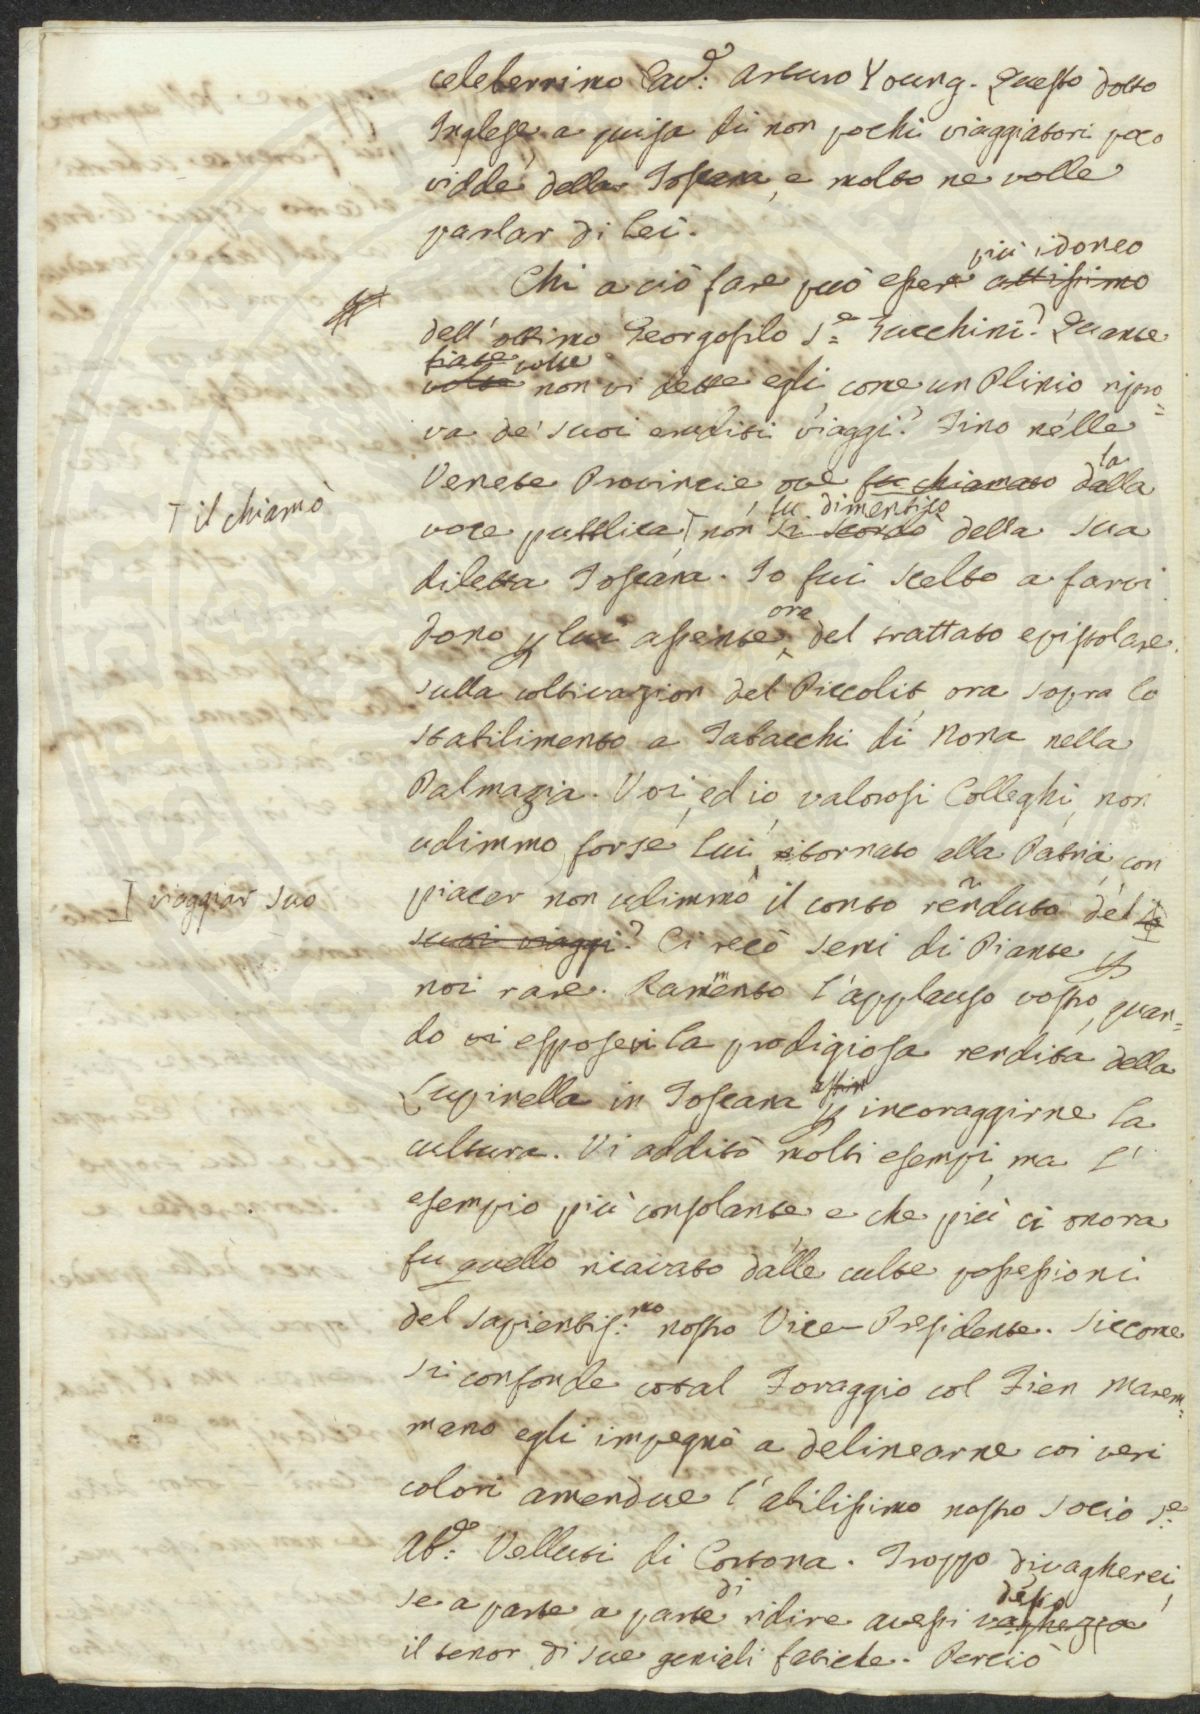 celeberrimo Cav.e Arturo Young. Questo dotto
Inglese a guisa di non pochi viaggiatori poco
vidde della Toscana, e molto ne volle
parlar di Lei.
più idoneo
Chi a ciò fare può esser attissimo
dell'ottimo Georgofilo S.e Zucchini? Quante
fiate volte
volte non vi dette egli come un Plinio ripro=
va de' suoi eruditi viaggi? Fino nelle
Venete Provincie ove fu chiamato dalla
la
T il chiamò
fu dimentico
voce pubblica T non si scordò della sua
diletta Toscana. Io fui scelto a farvi
dono p lui assente ora del trattato epistolare
sulla coltivazion del Piccolit, ora sopra lo
stabilimento a Tabacchi di Nona nella
Dalmazia. Voi, ed io, valorosi Colleghi, non
udimmo forse, lui ritornato alla Patria, con
I viaggiar suo
piacer non udimmo il conto renduto del
suoi viaggi? Ci recò semi di Piante p
noi rare. Rammento l'applauso vostro, quan=
do vi esposi la prodigiosa rendita della
Lupinella in Toscana p incoraggirne la
cultura. Vi additò molti esempi, ma l'
esempio più consolante e che più ci onora
fu quello ricavato dalle culte possessioni
del Sapientis.mo nostro Vice-Presidente. Siccome
si confonde cotal Foraggio col Fien Marem=
mano egli impegnò a delinearne coi veri
colori amendue l'abilissimo nostro Socio S.e
Ab.e Velluti di Cortona. Troppo divagherei,
di
desio
se a parte a parte ridire avessi vaghezza
il tenor di sue geniali fatiche. Perciò